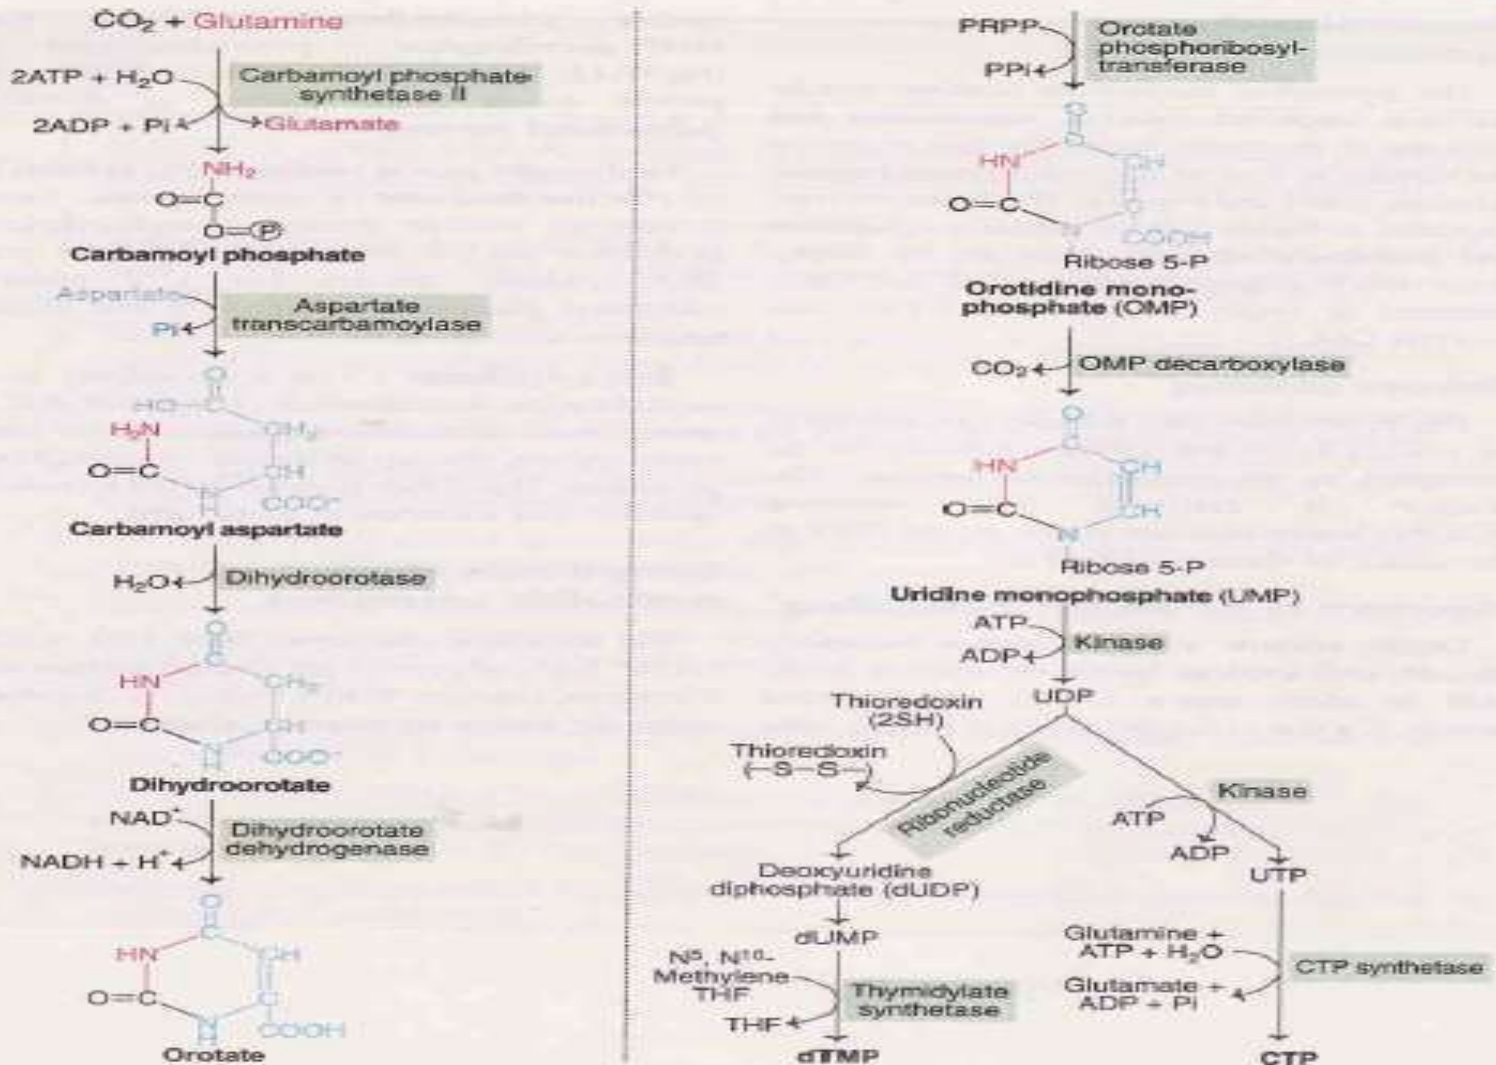 CO₂ + Glutamine
2ATP + H₂O
Carbamoyl phosphate
synthetase II
2ADP + Pi
Glutamate
NH₂
O=C
O-P
Carbamoyl phosphate
Aspartate
Pi
Aspartate
transcarbamoylase
O
HO C
H₂N CH₂
O=C CH
N COO⁻
H
Carbamoyl aspartate
H₂O
Dihydroorotase
O
C
HN CH₂
O=C CH
N COO⁻
H
Dihydroorotate
NAD⁺
NADH + H⁺
Dihydroorotate
dehydrogenase
O
C
HN CH
O=C C
N COOH
H
Orotate
PRPP
PPi
Orotate
phosphoribosyl-
transferase
O
C
HN CH
O=C C
N COOH
Ribose 5-P
Orotidine mono-
phosphate (OMP)
CO₂
OMP decarboxylase
O
C
HN CH
O=C CH
N
Ribose 5-P
Uridine monophosphate (UMP)
ATP
ADP
Kinase
UDP
Thioredoxin
(2SH)
Thioredoxin
(-S-S-)
Ribonucleotide
reductase
Kinase
ATP
ADP
Deoxyuridine
diphosphate (dUDP)
UTP
dUMP
N⁵, N¹⁰-
Methylene
THF
THF
Thymidylate
synthetase
dTMP
Glutamine +
ATP + H₂O
Glutamate +
ADP + Pi
CTP synthetase
CTP